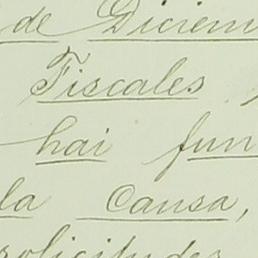 de Diciem
Fiscales,
hai fun
la causa,
solicitudes